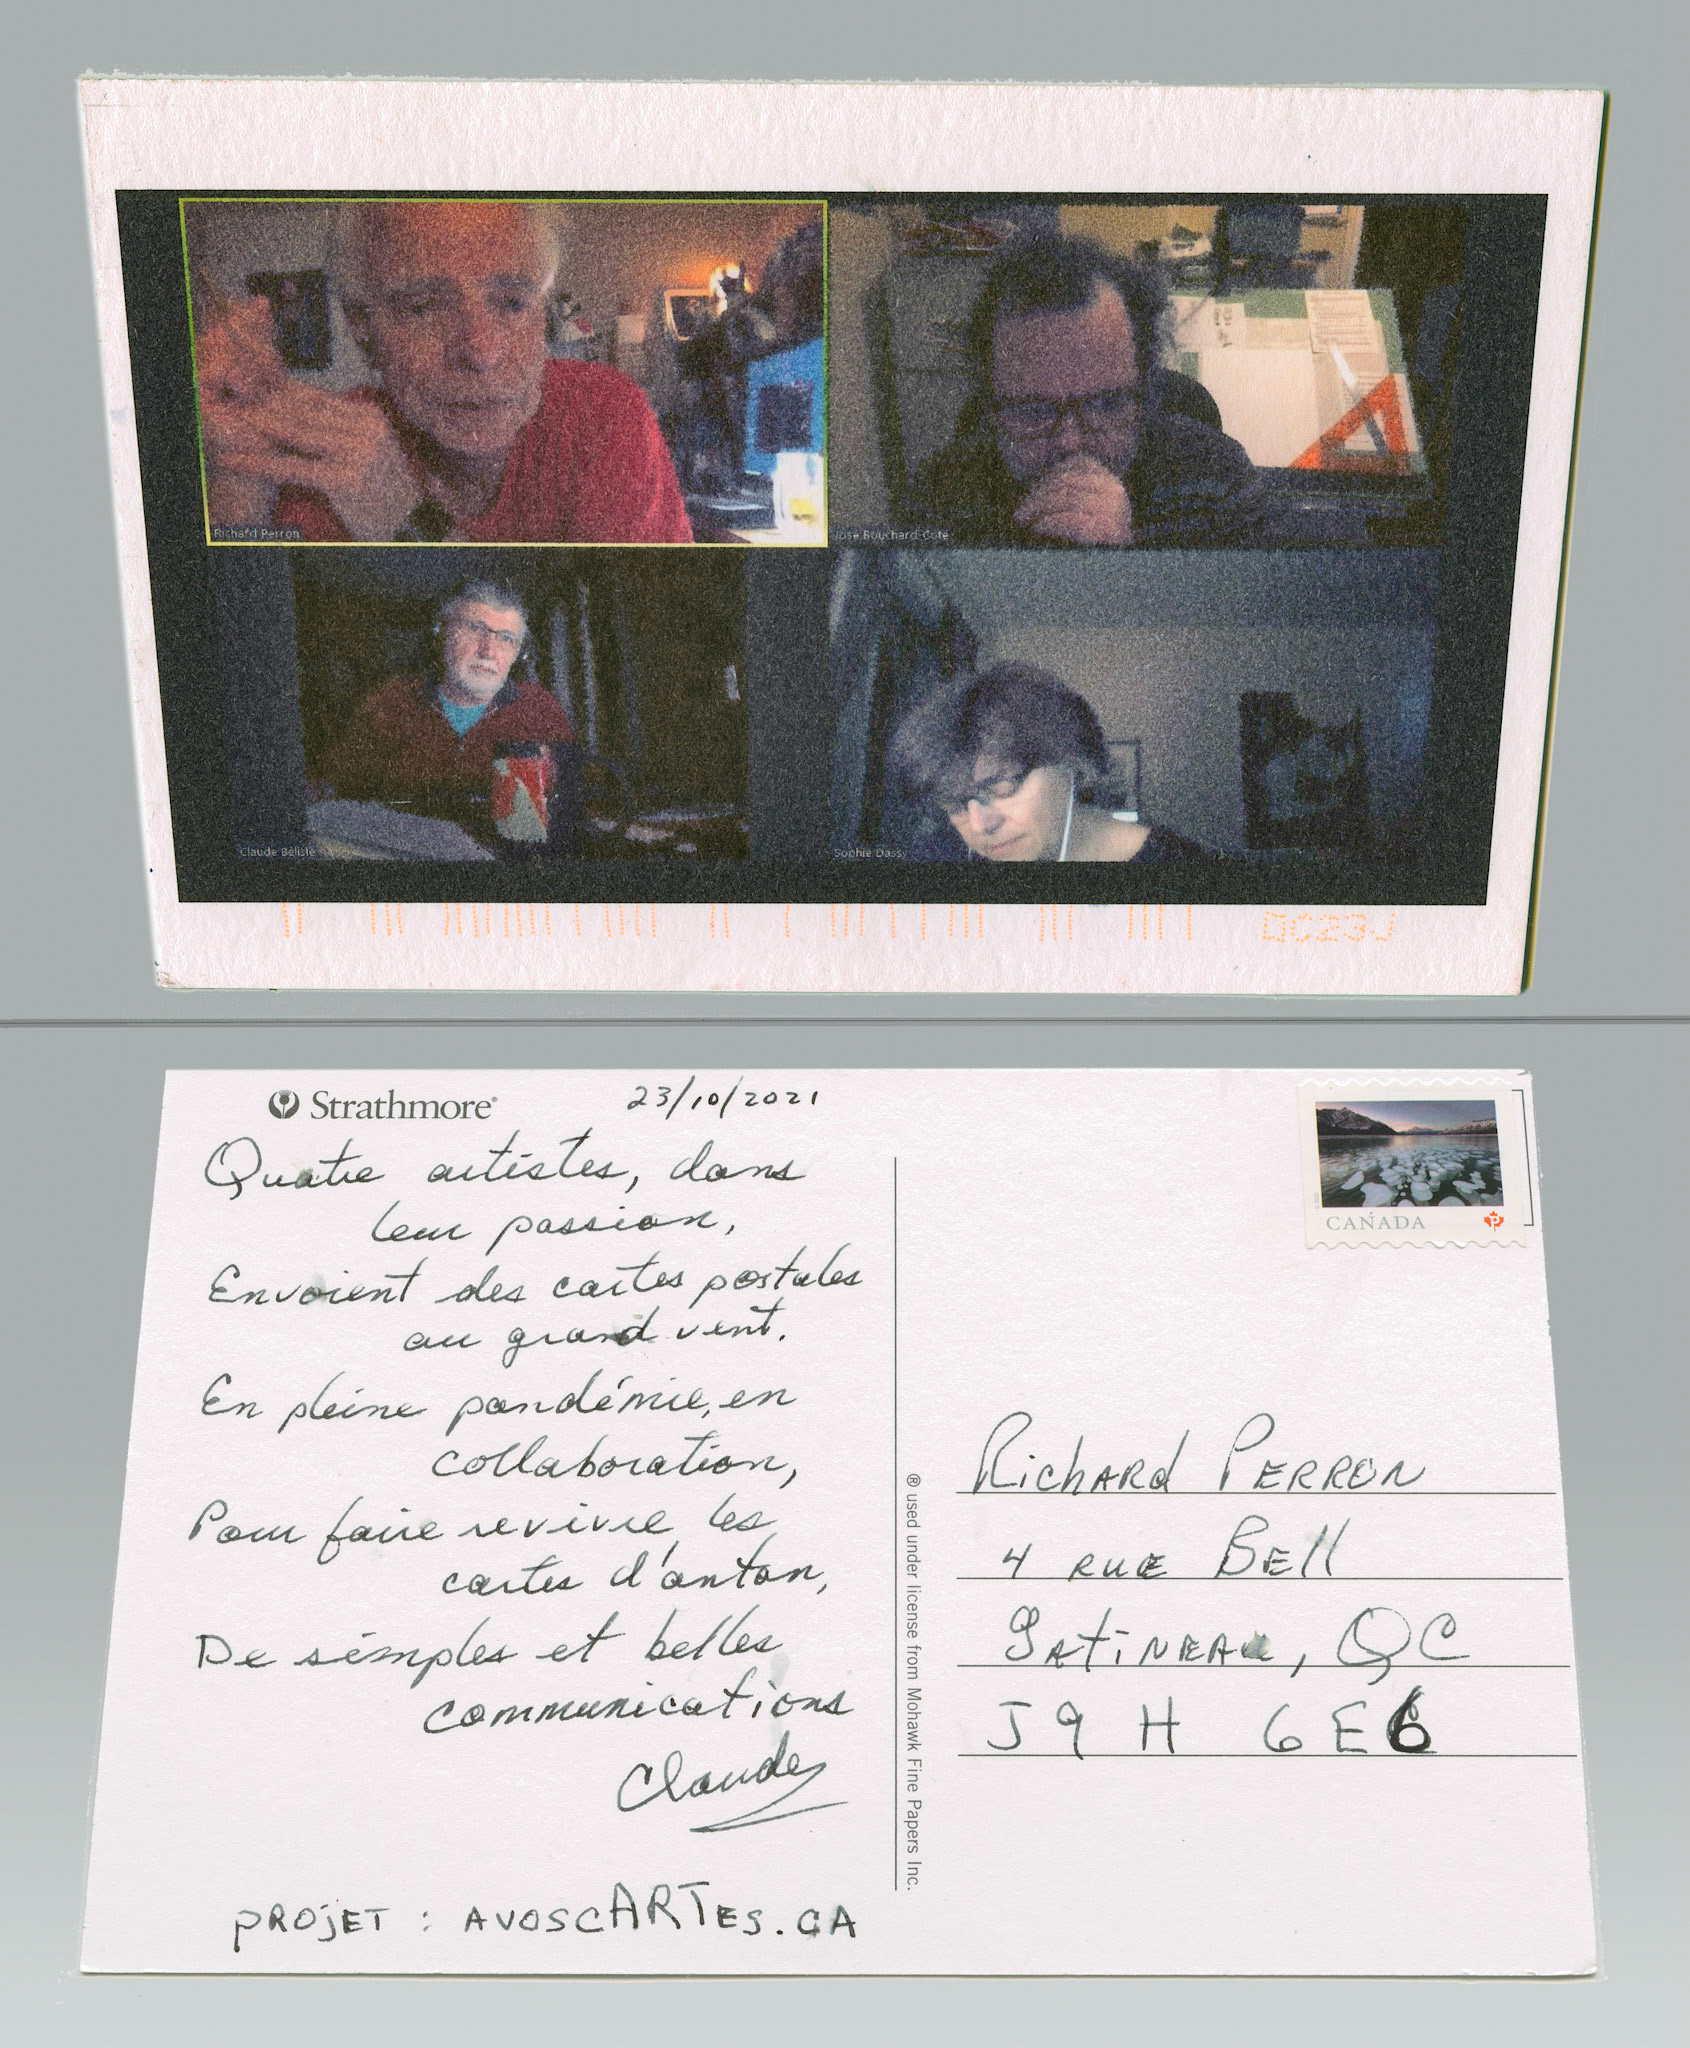 Richard Perron
Jose Bouchard-Cote
Claude Bélisle
Sophie Dassy
QC23J
Strathmore®
23/10/2021
Quatre artistes, dans
leur passion,
Envoient des cartes postales
au grand vent.
En pleine pandémie, en
collaboration,
Pour faire revivre les
cartes d'antan,
De simples et belles
communications
Claude
PROJET : AVOSCARTES.CA
® used under license from Mohawk Fine Papers Inc.
CANADA
P
Richard PERRON
4 RUE BEll
GATINEAU, QC
J9H 6E6